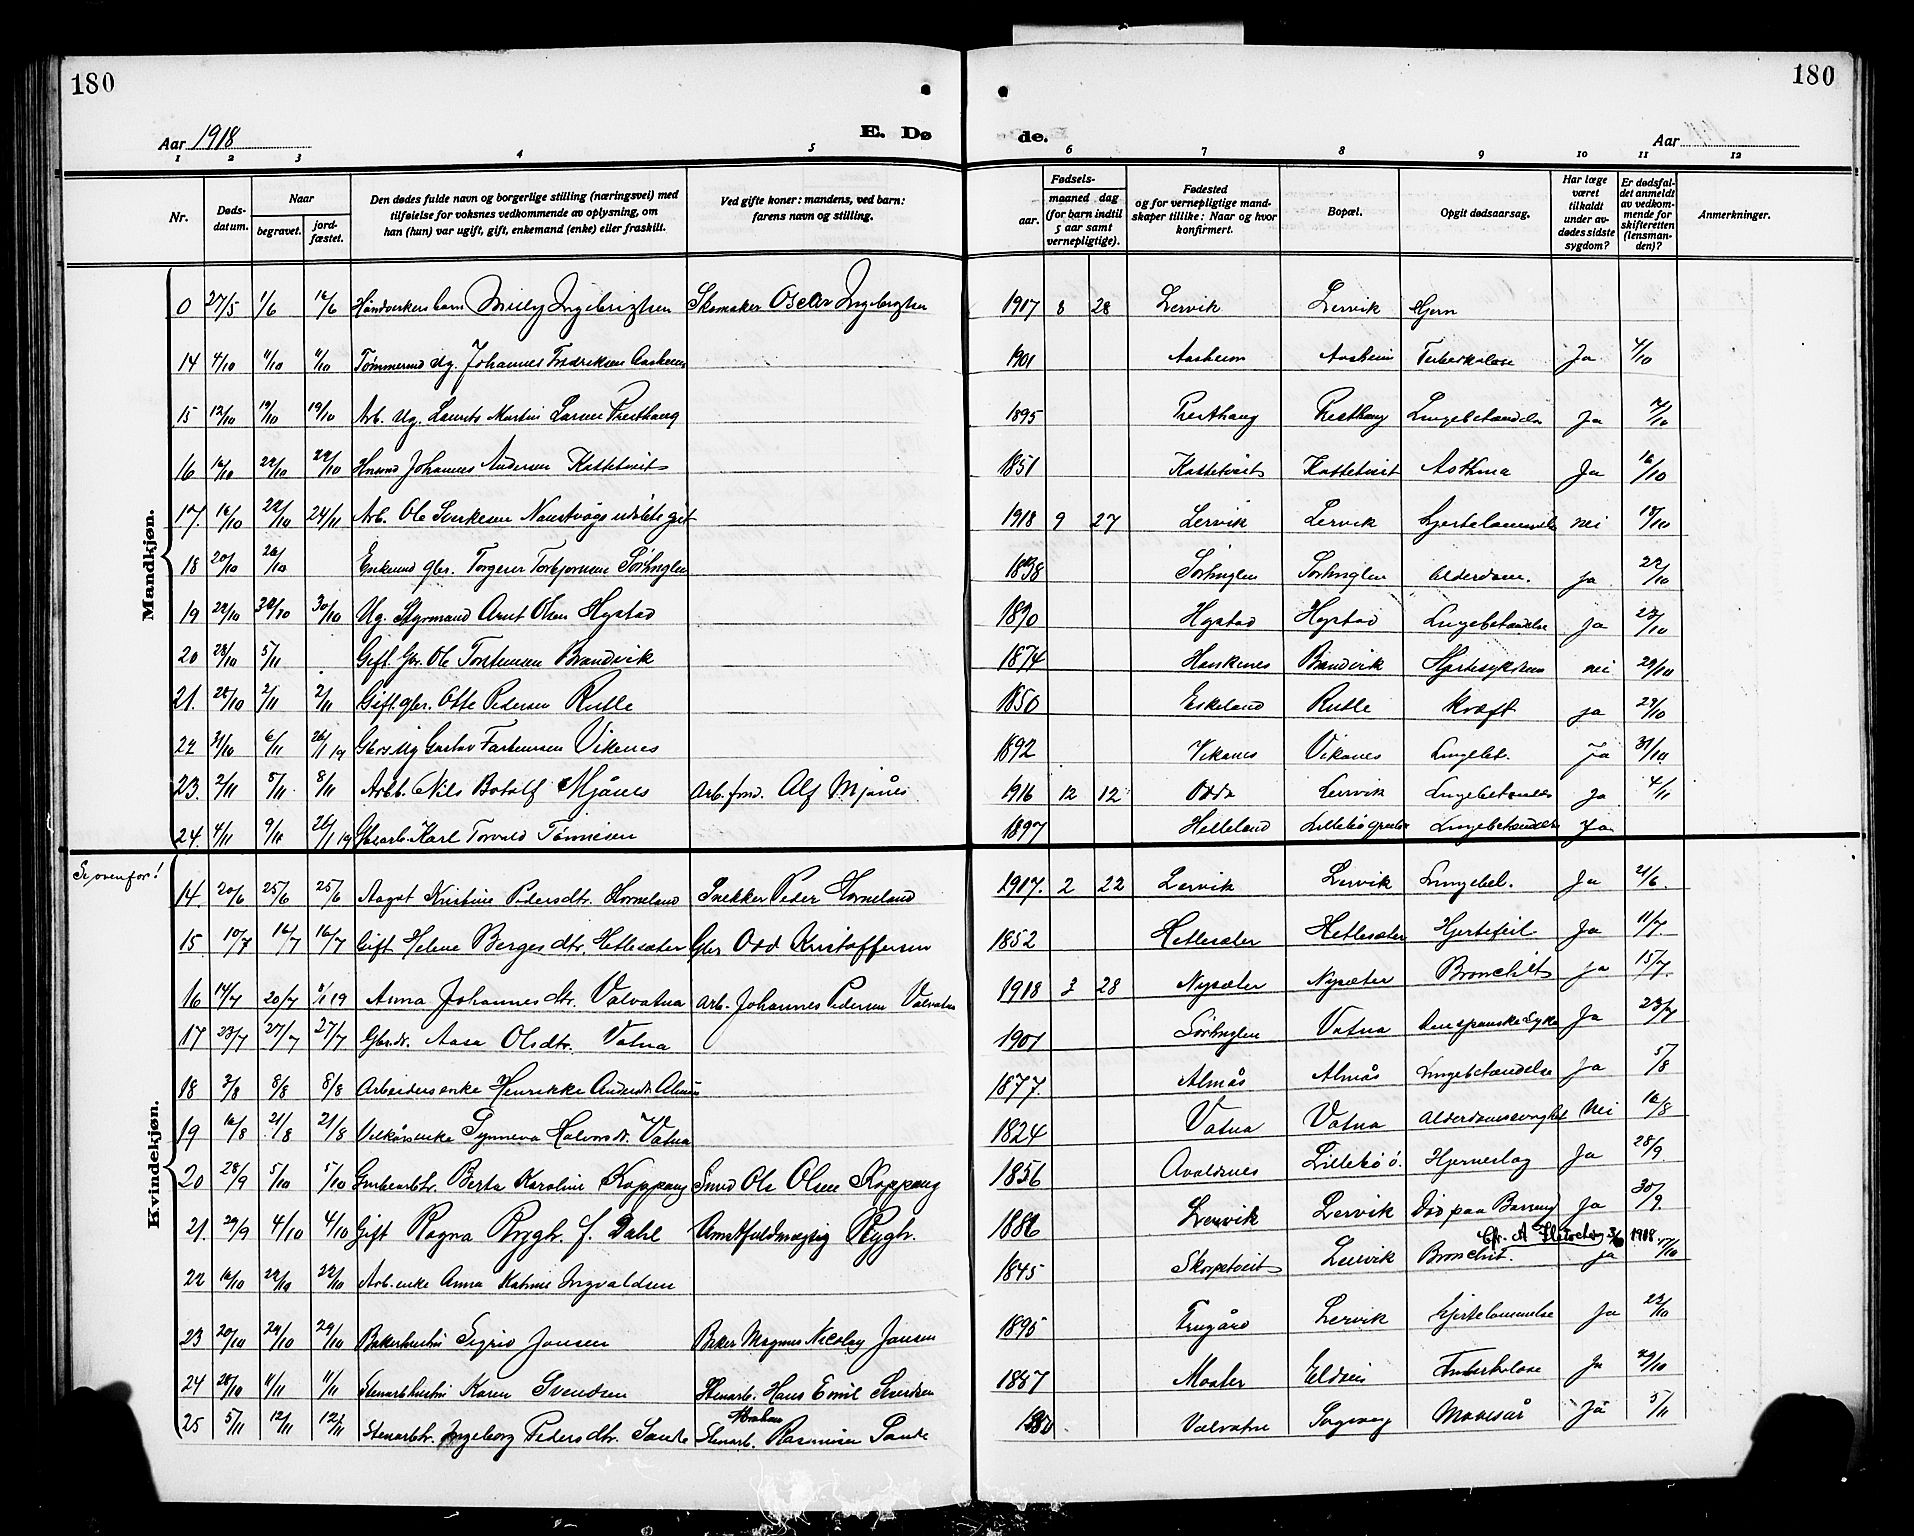 180
180
Aar 1918
E. Dø
de.
Aar
1 2 3 4 5 6 7 8 9 10 11 12
Nr.
Døds-datum.
Naar
begravet.
jord-fæstet.
Den dødes fulde navn og borgerlige stilling (næringsvei) med
tilføielse for voksnes vedkommende av oplysning, om
han (hun) var ugift, gift, enkemand (enke) eller fraskilt.
Ved gifte koner: mandens, ved barn:
farens navn og stilling.
Fødsels-
aar.
maaned dag
(for barn indtil
5 aar samt
vernepligtige).
Fødested
og for vernepligtige mand-
skaper tillike: Naar og hvor
konfirmert.
Bopæl.
Opgit dødsaarsag.
Har læge
været
tilkaldt
under av-
dødes sidste
sygdom?
Er dødsfal-
det anmeldt
av vedkom-
mende for
skifteretten
(lensman-
den)?
Anmerkninger.
Mandkjøn.
0 27/5 1/6 16/6 Handverkers barn Milly Ingebrigtsen Skomaker Oscar Ingebrigtsen 1917 8 28 Lervik Lervik Hjern
14 4/10 11/10 11/10 Tømmermd ug. Johannes Fredriksen Aasheim 1901 Aasheim Aasheim Tuberkolose Ja 4/10
15 12/10 19/10 19/10 Arb. Ug. Laurits Martin Larsen Presthaug 1895 Presthaug Presthaug Lungebetændelse Ja 7/10
16 16/10 22/10 22/10 Johannes Andersen Kattetveit 1851 Kattetveit Kattetveit Asthma Ja 16/10
17. 16/10 22/10 24/11 Arb. Ole Sverkesen Naustvågs udøbte gut 1918 9 27 Lervik Lervik Hjertelammelse nei 18/10
18 20/10 26/10 Enkemd gbr. Torgeir Torbjørnsen Sørhuglen Sørhuglen Sørhuglen Alderdom. ja 22/10
19 22/10 30/10 30/10 Ug. Styrmand Arnt Olsen Hystad 1890 Hystad Hystad Lungebetændelse ja 23/10
20 28/10 5/11 Gift. Gbr. Ole Torstensen Brandvik 1874 Brandvik Hjertesykdom nei 29/10
21. 28/10 2/11 2/11 Gift. gbr. Otte Pedersen Rutle 1850 Eskeland Rutle Kræft ja 29/10
22 31/10 6/11 26/1 19 Gbrs. Ug Gustav Vikenes 1892 Vikanes Vikanes Lungebet. Ja 31/10
23. 2/11 8/11 8/11 Arbb. Nils Botolf Mjånes Arb. fmd. Alf Mjånes 1916 12 12 Odda Lervik Lungebetændelse Ja 4/11
24. 4/11 9/11 26/1 19 Gbrsarb. Karl Torvald Tønnesen 1897 Helleland Lillebø gruber Lungebetændelse Ja
Se ovenfor!
Kvindekjøn.
14. 20/6 25/6 25/6 Aagot Kristine Pedersdtr. Horneland Snekker Peder Horneland 1917. 2 22 Lervik Lervik Lungebet. Ja 21/6.
15. 10/7 16/7 16/7 Gift Helene Bergesdtr. Hetlesæter Gbr Odd Kristoffersen 1852 Hetlesæter Hetlesæter Hjertefeil Ja 11/7
16 14/7 20/7 5/1 19 Anna Johannesdtr. Valvatna Arb. Johannes Pedersen Valvatna 1918 3 28 Nysæter Nysæter Bronchit ja 15/7.
17 23/7 27/7 27/7 Gbr.dr. Aasa Olsdtr. Vatna 1901 Sørhuglen Vatna Den spanske syke Ja 23/7
18 3/8 8/8 8/8 Arbeidersenke Henrikke Andersdtr Almås 1877. Almås Almås Lungebetændelse Ja 5/8
19 16/8 21/8 21/8 Vilkårsenke Synneva Halvorsdr. Vatna 1824 Vatna Vatna Alderdomssvaghet Nei 16/8
20 28/9 5/10 5/10 Berta Karoline Koppang Smed Ole Olsen Koppang 1856 Avaldsnes Lillebø ø. Hjerneslag Ja 28/9.
21. 29/9 4/10 4/10 Gift Ragna Rygh f. Dahl Amtsfuldmægtig Rygh. 1886 Lervik Lervik Død paa Barseng Ja 30/9.
Cfr. A 1918.
22 16/10 22/10 22/10 Arb. enke Anna Katrine Ingvaldsen 1845 Skorpetveit Lervik Bronchit. ja 17/10
23 20/10 29/10 29/10 Bakerhustru Sigrid Jansen Baker Magnus Nicolay Jansen 1895 Frugård Lervik Hjertelammelse Ja 22/10
24 28/10 11/11 11/11 Stenarb.hustru Karen Svendsen Stenarb. Hans Emil Svendsen 1887 Moster Eldøen Tuberkolose Ja 29/10
25 5/11 12/11 12/11 Stenarb.tr. Ingeborg Pedersdtr. Sande Stenarb. Abraham Rasmussen Sande Valvatne Sagvaag Mavesår Ja 5/11